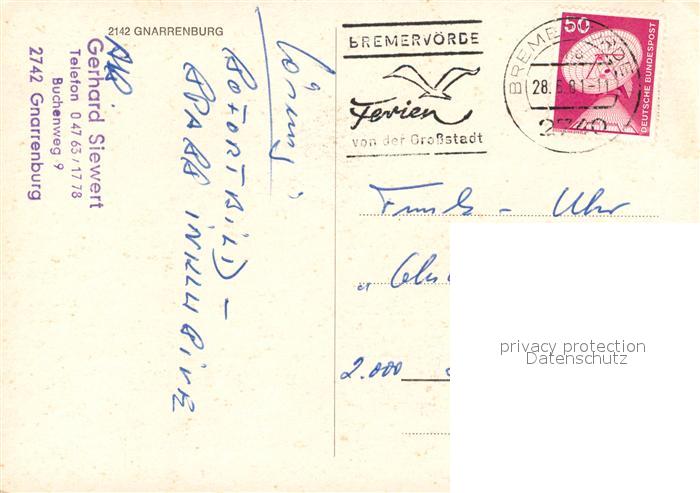 2142 GNARRENBURG
Gerhard Siewert
Telefon 0 47 63 / 17 78
Buchenweg 9
2742 Gnarrenburg
Lösung:
SOFORTBILD –
SPASS INKLUSIVE
BREMERVÖRDE
Ferien
von der Großstadt
BREMERVÖRDE
28.6.81-11
2740
50
DEUTSCHE BUNDESPOST
Funk - Uhr
2.000
privacy protection
Datenschutz